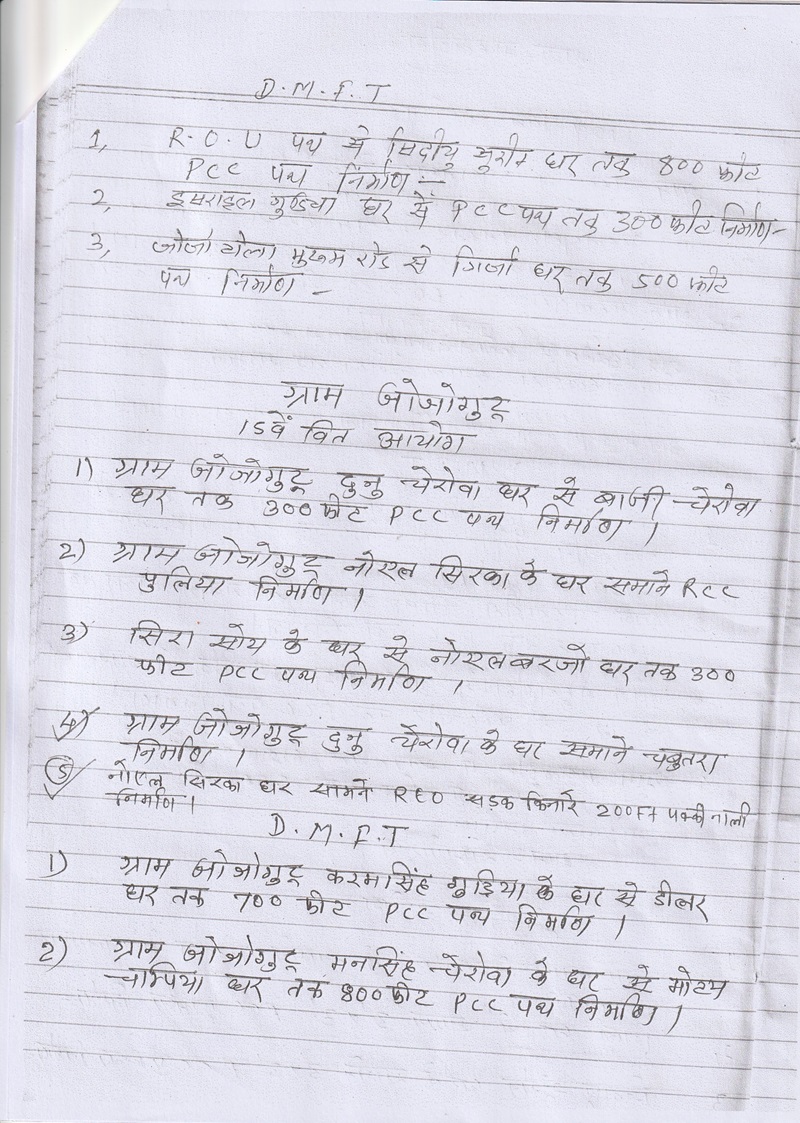 D.M.F.T
1, R.O.U पथ से सिदीयु मुरीन घर तक 800 फीट
PCC पथ निर्माण :-
2, इसराइल गुडिया घर से PCC पथ तक 300 फीट निर्माण-
3, जोजो टोला मुख्य रोड से गिर्जा घर तक 500 फीट
पथ निर्माण -
ग्राम जोजोगुटू
15वें वित आयोग
1) ग्राम जोजोगुटू दुनु चेरोवा घर से बाजी चेरोवा
घर तक 300 फीट PCC पथ निर्माण ।
2) ग्राम जोजोगुटू नोएल सिरका के घर समाने RCC
पुलिया निर्माण ।
3) सिरा सोय के घर से नोएल बरजो घर तक 300
फीट PCC पथ निर्माण ।
4) ग्राम जोजोगुटू दुनु चेरोवा के घर समाने चबुतरा
निर्माण ।
5 नोएल सिरका घर सामने REO सड़क किनारे 200Ft पक्की नाली
निर्माण ।
D.M.F.T
1) ग्राम जोजोगुटू करमसिंह गुड़िया के घर से डीलर
घर तक 700 फीट PCC पथ निर्माण ।
2) ग्राम जोजोगुटू मनसिंह चेरोवा के घर से मोटम
चाम्पिया घर तक 800 फीट PCC पथ निर्माण ।